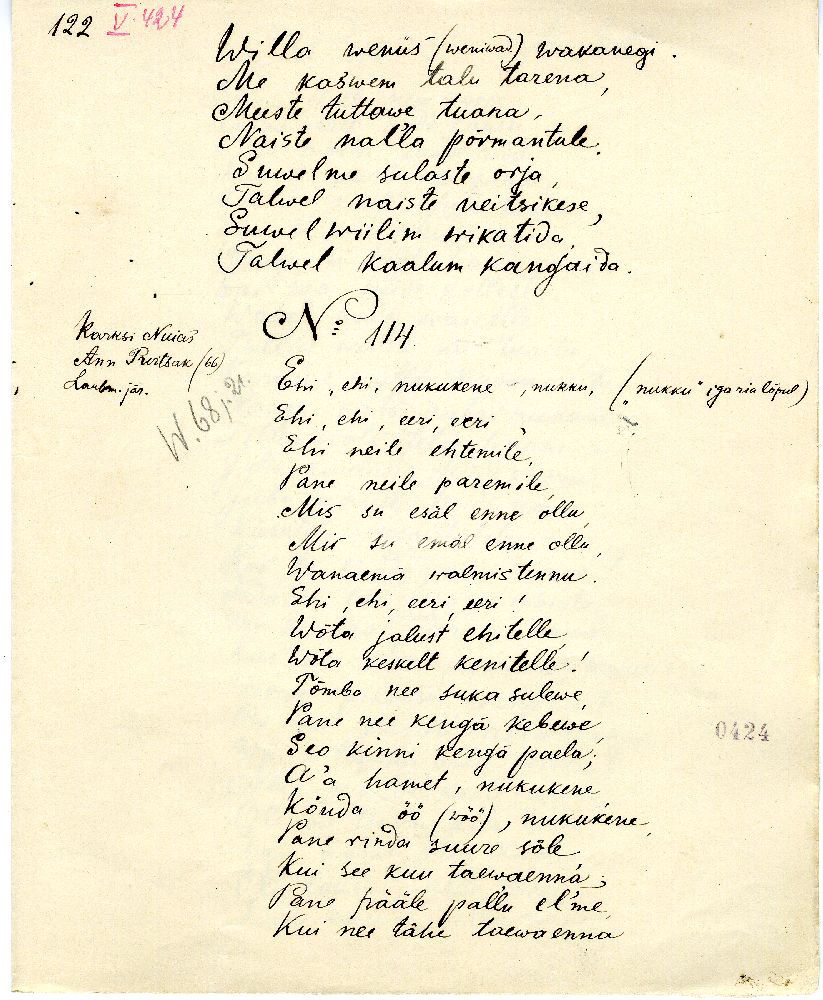 122 V. 424
Willa weniis (weniwad) wakanegi.
Me kaswem talu tarena,
Meeste tuttawe tuana,
Naiste nal'la põrmantule.
Suwelme sulaste orja,
Talwel naiste neitsikese,
Suwel wiilim wikatida,
Talwel kaalum kangaida.
No 114.
Karksi Nuias
Ann Pertsak (66)
jär.
W. 68 j. 21.
Ehi, ehi, nukukene, nukku, ("nukku" iga ria lõpul)
Ehi, ehi, eeri, eeri,
Ehi neile ehtemile,
Pane neile paremile,
Mis su esäl enne ollu,
Mis su emäl enne ollu,
Wanaemä walmistennu.
Ehi, ehi, eeri, eeri!
Wõta jalust ehitelle,
Wõta keskelt kenitelle!
Tõmba nee suka sulewe,
Pane nee kengä kebewe,
Seo kinni kengä paela;
A'a hamet, nukukene,
Kõuda öö (wöö), nukukene,
Pane rinda suure sõle
Kui see kuu taewaenna;
Pane pääle pallu el'me,
Kui nee tähe taewaenna
0424